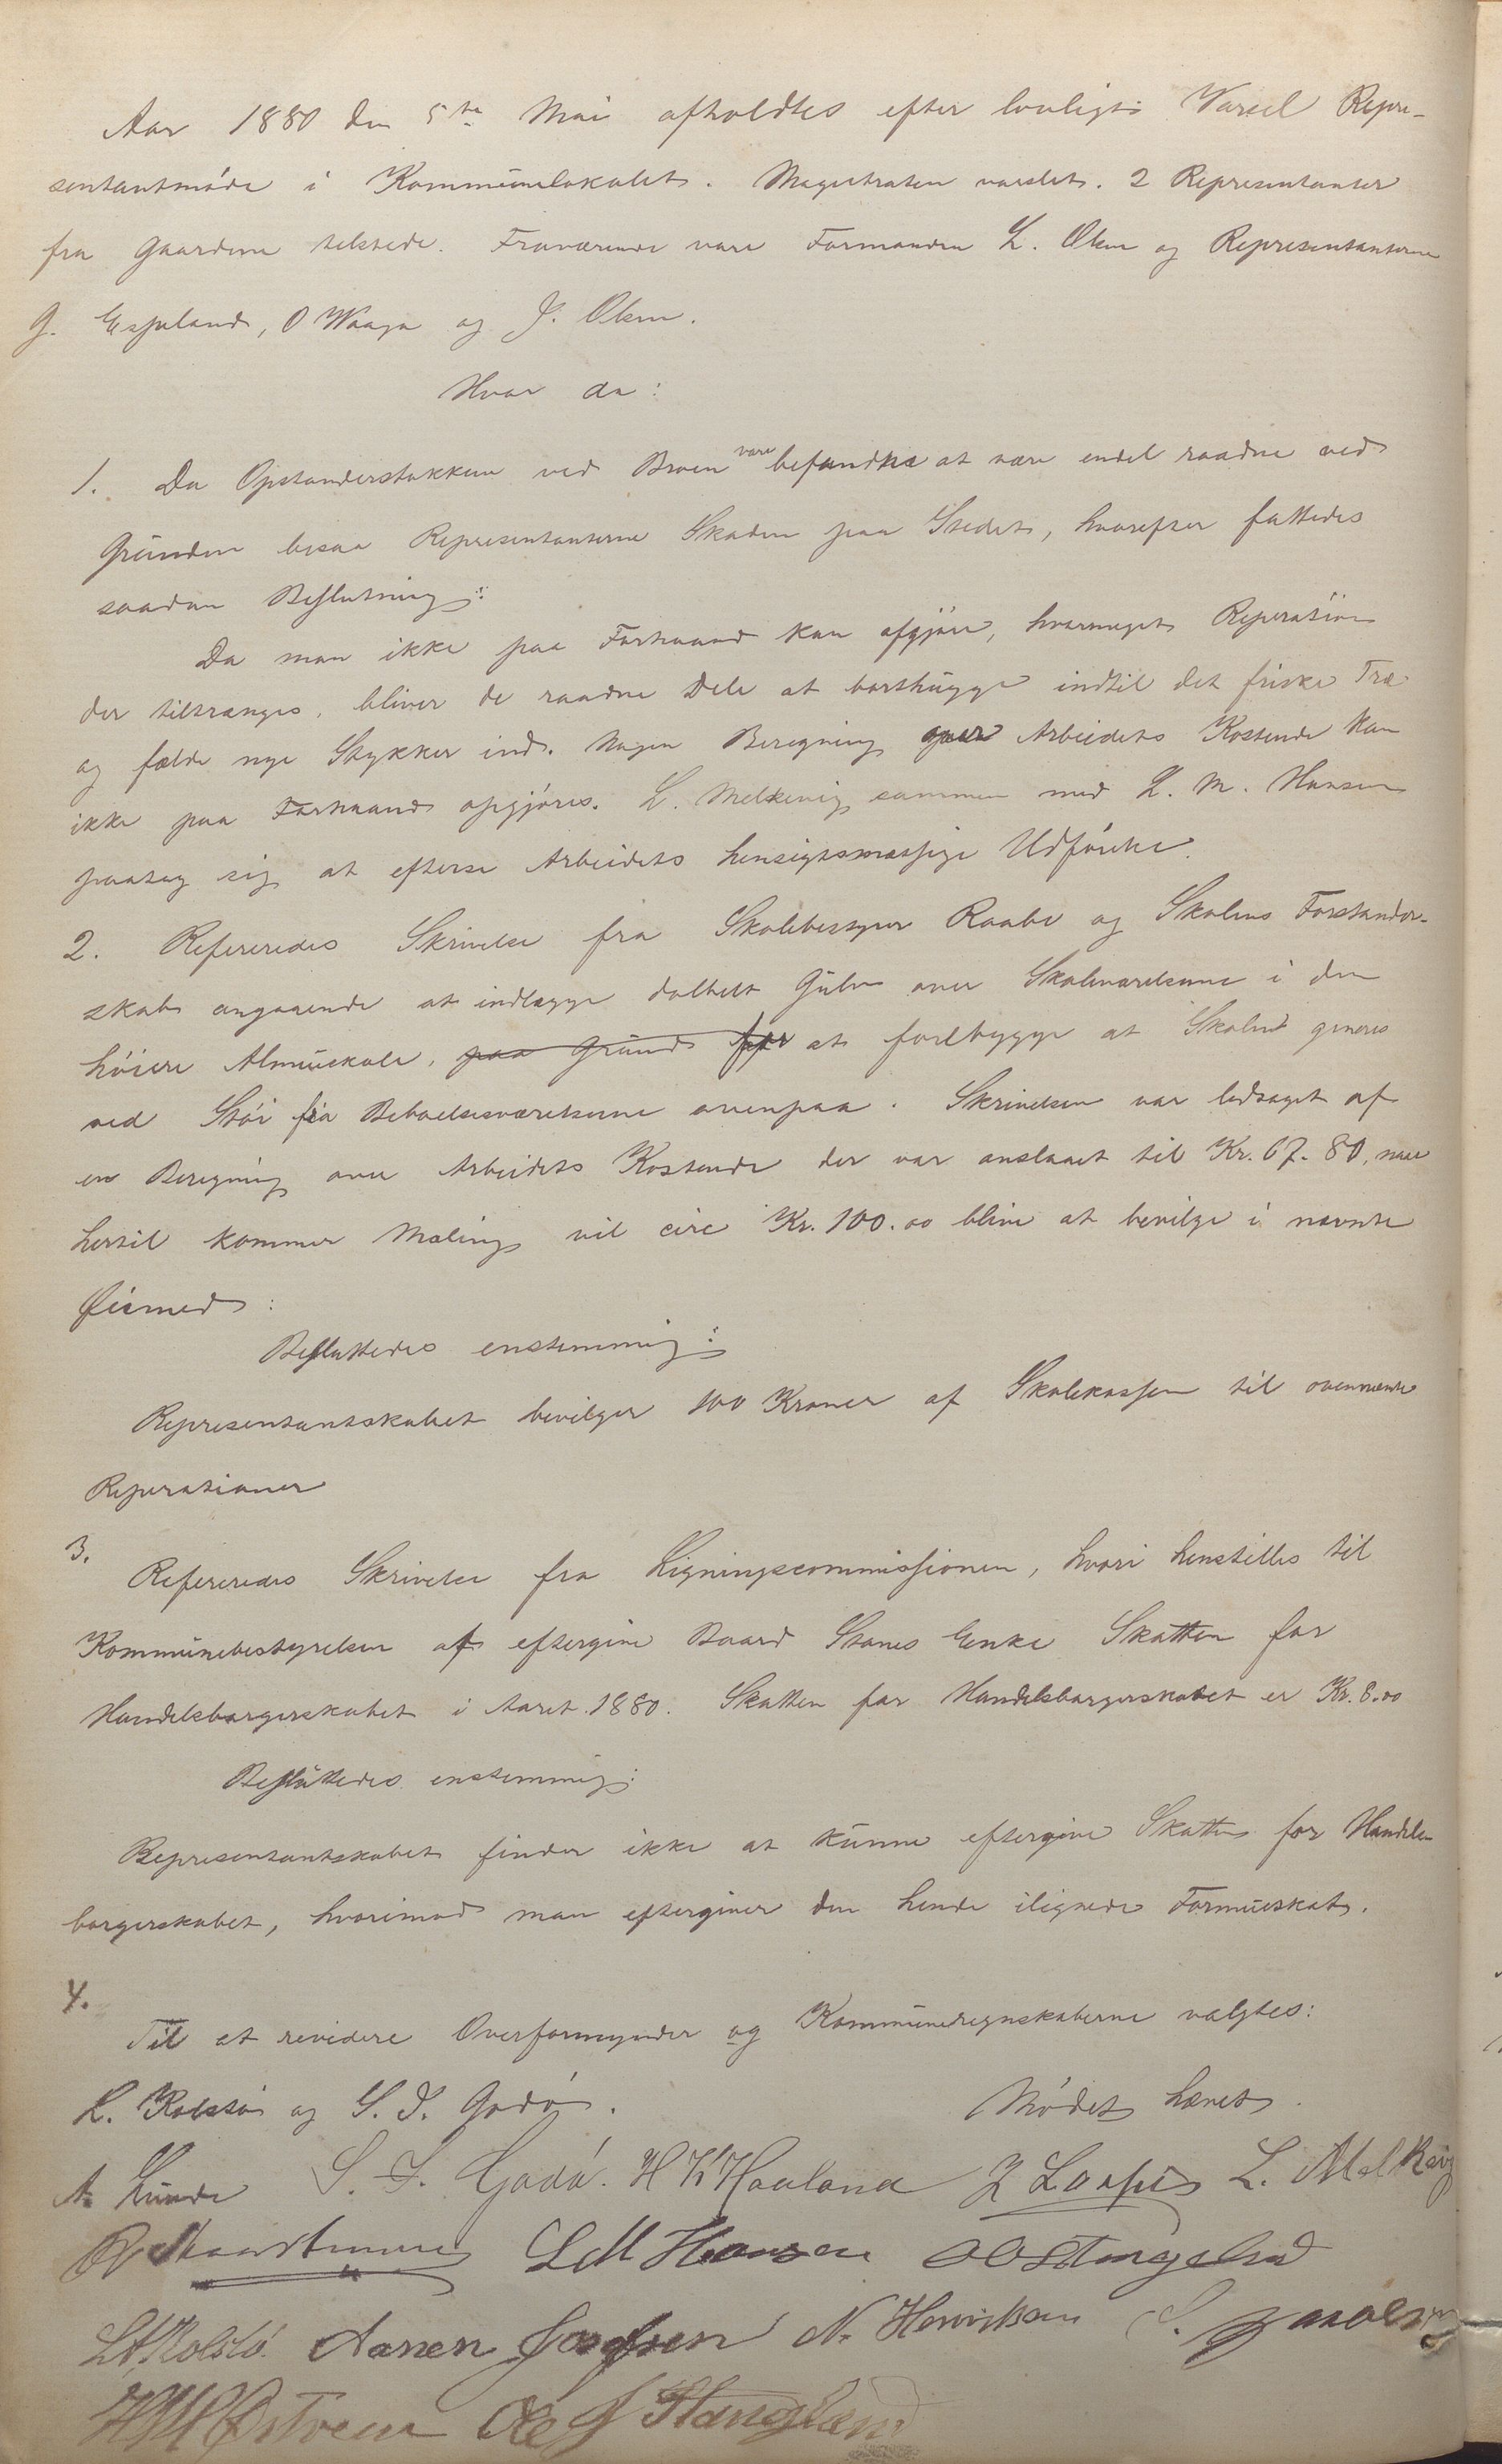 Aar 1880 den 5te Mai afholdtes efter lovligt Varsel Repre-
sentantmöde i Kommunelokalet. Magistraten varslet. 2 Representanter
fra Gaardene tilstede. Fraværende vare Formanden L. Olsen og Representanterne
G. Espeland, O Waage og J. Olsen.
Hvor da:
1. Da Opstanderstokkene ved Broen vare befundne at være endel raadne ved
Grunden besaa Representanterne Skaden paa Stedet, hvorefter fattedes
saadan Beslutning:
Da man ikke paa Forhaand kan afgjöre, hvormeget Reperation
der tiltrænges, bliver de raadne Dele at borthugge indtil det friske Træ
og fælde nye Stykker ind. Nogen Beregning over Arbeidets Kostende kan
ikke paa Forhaand opgjöres. L. Melkevig sammen med L. M. Hansen
paatog sig at efterse Arbeidets hensigtsmæssige Udförelse.
2. Refereredes Skrivelse fra Skolebestyrer Raabe og Skolens Forstander-
skab angaaende at indlægge dobbelt Gulv over Skoleværelserne i den
höiere Almueskole, paa Grund for at forebygge at Skolen generes
ved Stöi fra Beboelsesværelserne ovenpaa. Skrivelsen var ledsaget af
en Beregning over Arbeidets Kostende der var anslaaet til Kr. 67.80, naar
hertil kommer Maling vil circ Kr. 100.00 blive at bevilge i nævnte
Øiemed:
Besluttedes enstemmig:
Representantskabet bevilger 100 Kroner af Skolekassen til ovennævnte
Reperationer
3.
Refereredes Skrivelse fra Ligningscommissionen, hvori henstilles til
Kommunebestyrelsen at eftergive Baard Stanes Enke Skatten for
Handelsborgerskabet i Aaret 1880. Skatten for Handelsborgerskabet er Kr. 8.00
Besluttedes enstemmig:
Representantskabet finder ikke at kunne eftergive Skatten for Handels-
borgerskabet, hvorimod man eftergiver den hende ilignede Formueskat.
4.
Til at revidere Overformynder og Kommuneregnskaberne valgtes:
L. Kolstö og S. J. Godö. Mödet hævet.
A. Lunde S. J. Godö. H K Haaland L. Melkevig
L M Hansen O O Stangeland
L A Kolstö. Aanen Josefsen N. Henriksen S.
H M Østveen Ole J Stangeland